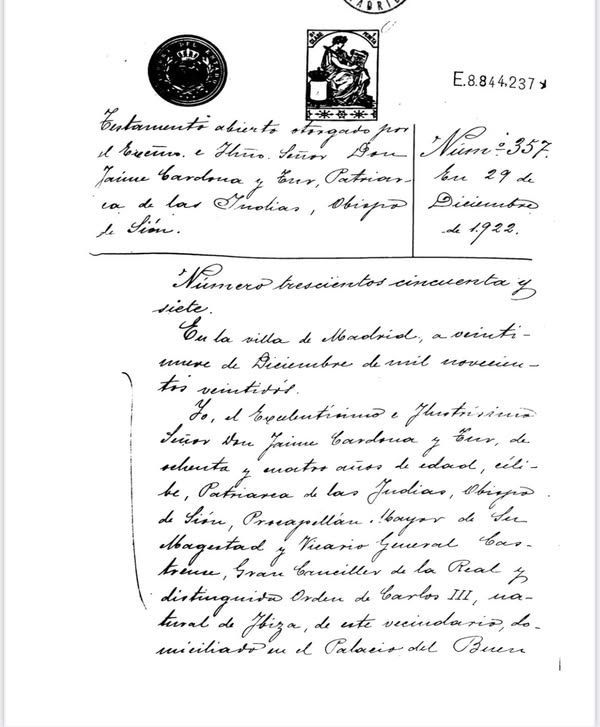 MADRID
E.8.844,237
Testamento abierto otorgado por
el Excmo. e Iltmo. Señor Don
Jaime Cardona y Tur, Patriar-
ca de las Indias, Obispo
de Sión.
Núm.º 357.
En 29 de
Diciembre
de 1.922.
Número trescientos cincuenta y
siete.
En la villa de Madrid, a veinti-
nueve de Diciembre de mil novecien-
tos veintidós.
Yo, el Excelentísimo e Ilustrísimo
Señor Don Jaime Cardona y Tur, de
ochenta y cuatro años de edad, céli-
be, Patriarca de las Indias, Obispo
de Sión, Procapellán Mayor de Su
Magestad y Vicario General Cas-
trense, Gran Canciller de la Real y
distinguida Orden de Carlos III, na-
tural de Ibiza, de este vecindario, do-
miciliado en el Palacio del Buen